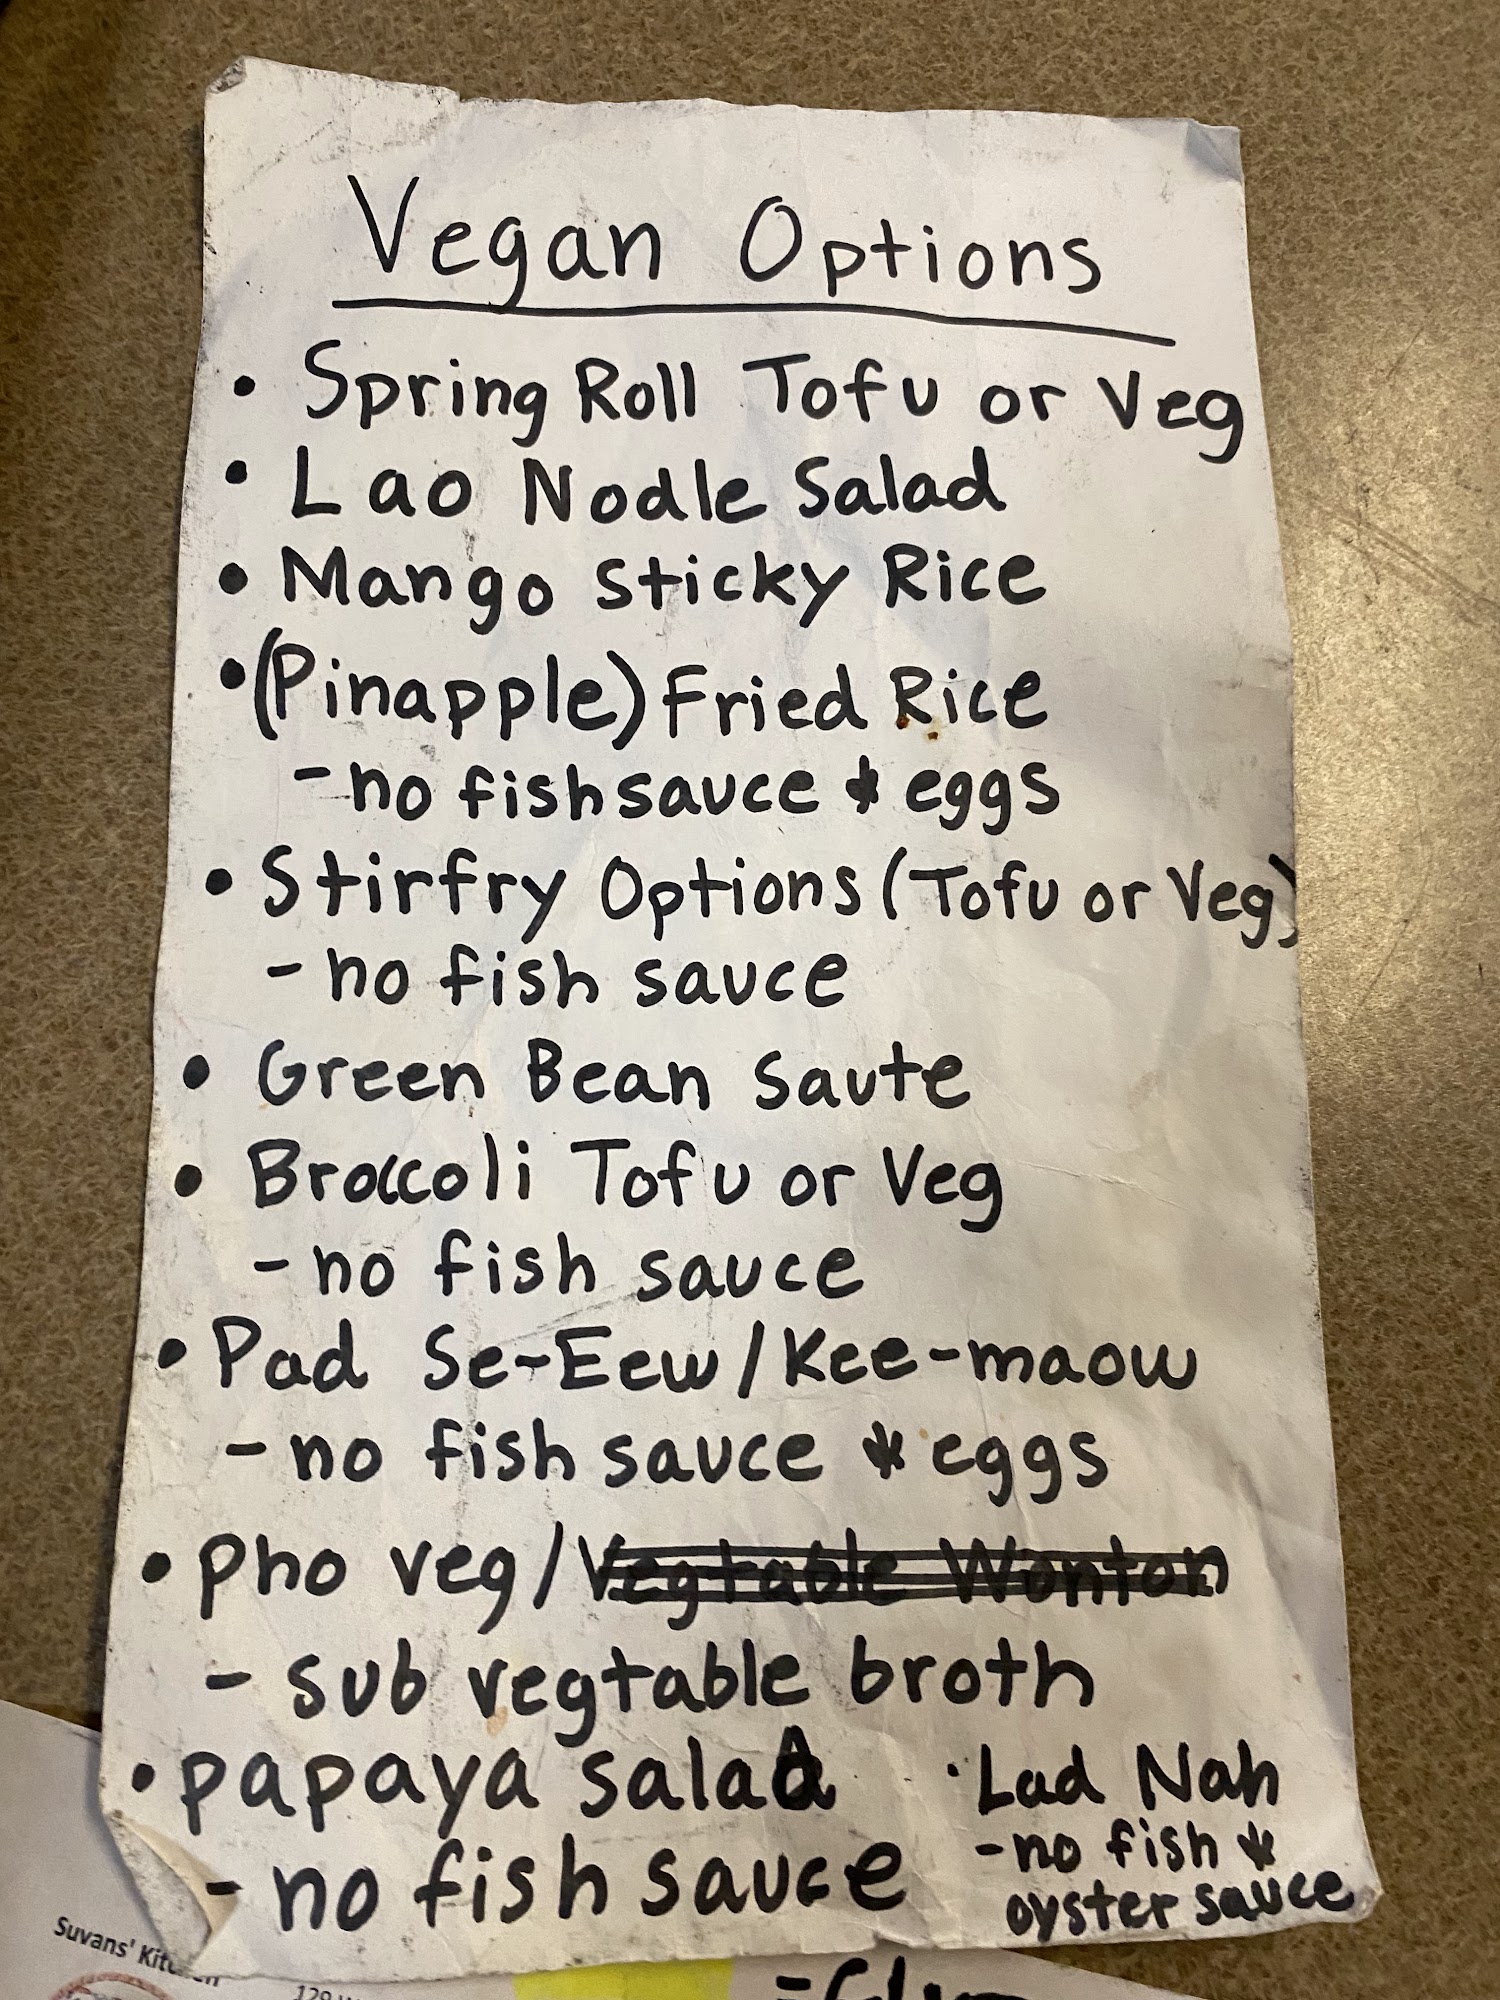 Vegan Options
• Spring Roll Tofu or Veg
• Lao Nodle Salad
• Mango Sticky Rice
• (Pinapple) Fried Rice
- no fishsauce & eggs
• Stirfry Options (Tofu or Veg)
- no fish sauce
• Green Bean Saute
• Broccoli Tofu or Veg
- no fish sauce
• Pad Se-Eew/Kee-maow
- no fish sauce & eggs
• Pho veg/Vegtable Wonton
- sub vegtable broth
• papaya salad
- no fish sauce
• Lad Nah
- no fish &
oyster sauce
Suvans'
129